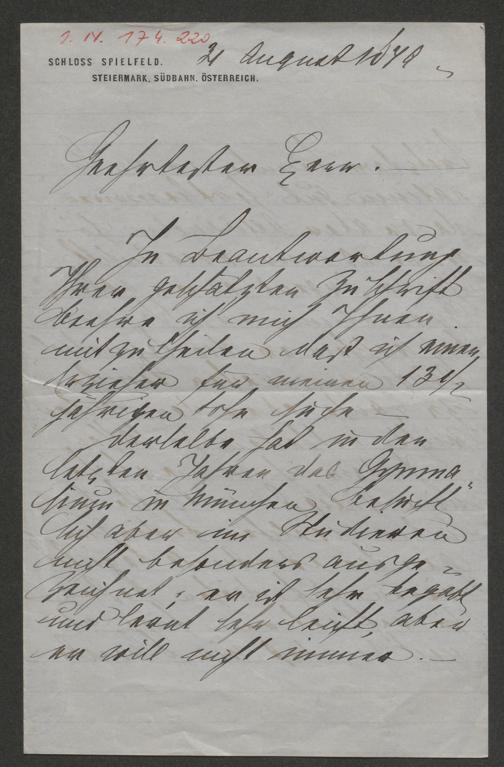 I. N. 174.220
SCHLOSS SPIELFELD.
STEIERMARK, SÜDBAHN. ÖSTERREICH.
21 August 1878
Geehrtester Herr.
In Beantwortung
Ihrer geschätzten Zuschrift
beehre ich mich Ihnen
mitzutheilen daß ich einen
Erzieher für meinen 13 1/2
jährigen Sohn suche –
Derselbe hat in den
letzten Jahren das Gymna-
sium in München besucht
sich aber im Studieren
nicht besonders ausge-
zeichnet; er ist sehr begabt
und lernt sehr leicht, aber
er will nicht immer. –